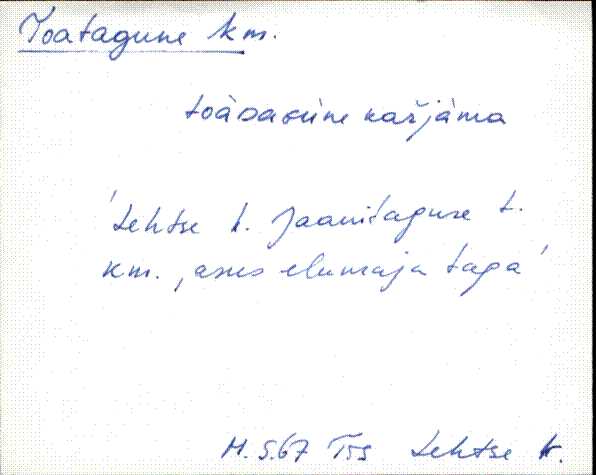 Toatagune km.
toaDaGune kaŕjama
'Lehtse k. Jaanitaguse t.
km., asus elumaja taga'
M. 5.67 Tss Lehtse k.